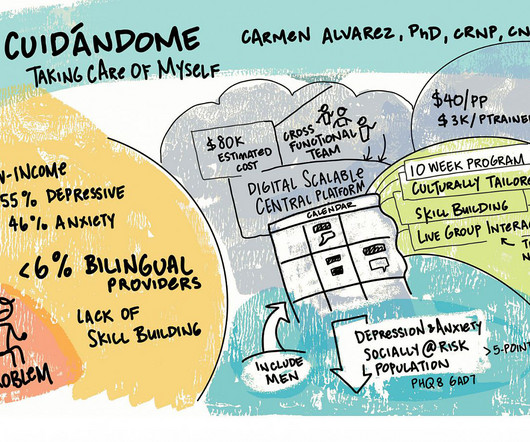 CUIDÁNDOME
TAKING CARE OF MYSELF
CARMEN ALVAREZ, PhD, CRNP, CN
W-INCOME
55% DEPRESSIVE
46% ANXIETY
<6% BILINGUAL
PROVIDERS
LACK OF
SKILL BUILDING
OBLEM
$80K
ESTIMATED
COST
GROSS
FUNCTIONAL
TEAM
DIGITAL SCALABLE
CENTRAL PLATFORM
CALENDAR
INCLUDE
MEN
DEPRESSION & ANXIETY
SOCIALLY @ RISK
POPULATION
PHQ8 GAD7
>5-POINT
$40/PP
$3K/PTRAINE
10 WEEK PROGRAM
CULTURALLY TAILOR
SKILL BUILDING
LIVE GROUP INTERAC